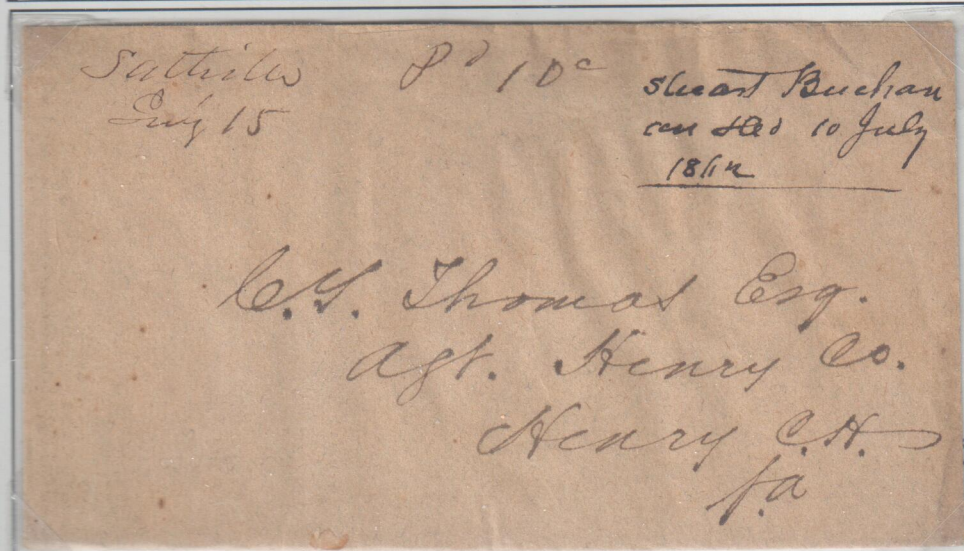 Saltville
July 15
Pd 10c
Stuart Buchan
can & Co 10 July
1862
C.S. Thomas Esq.
Agt. Henry Co.
Henry C.H.
Va